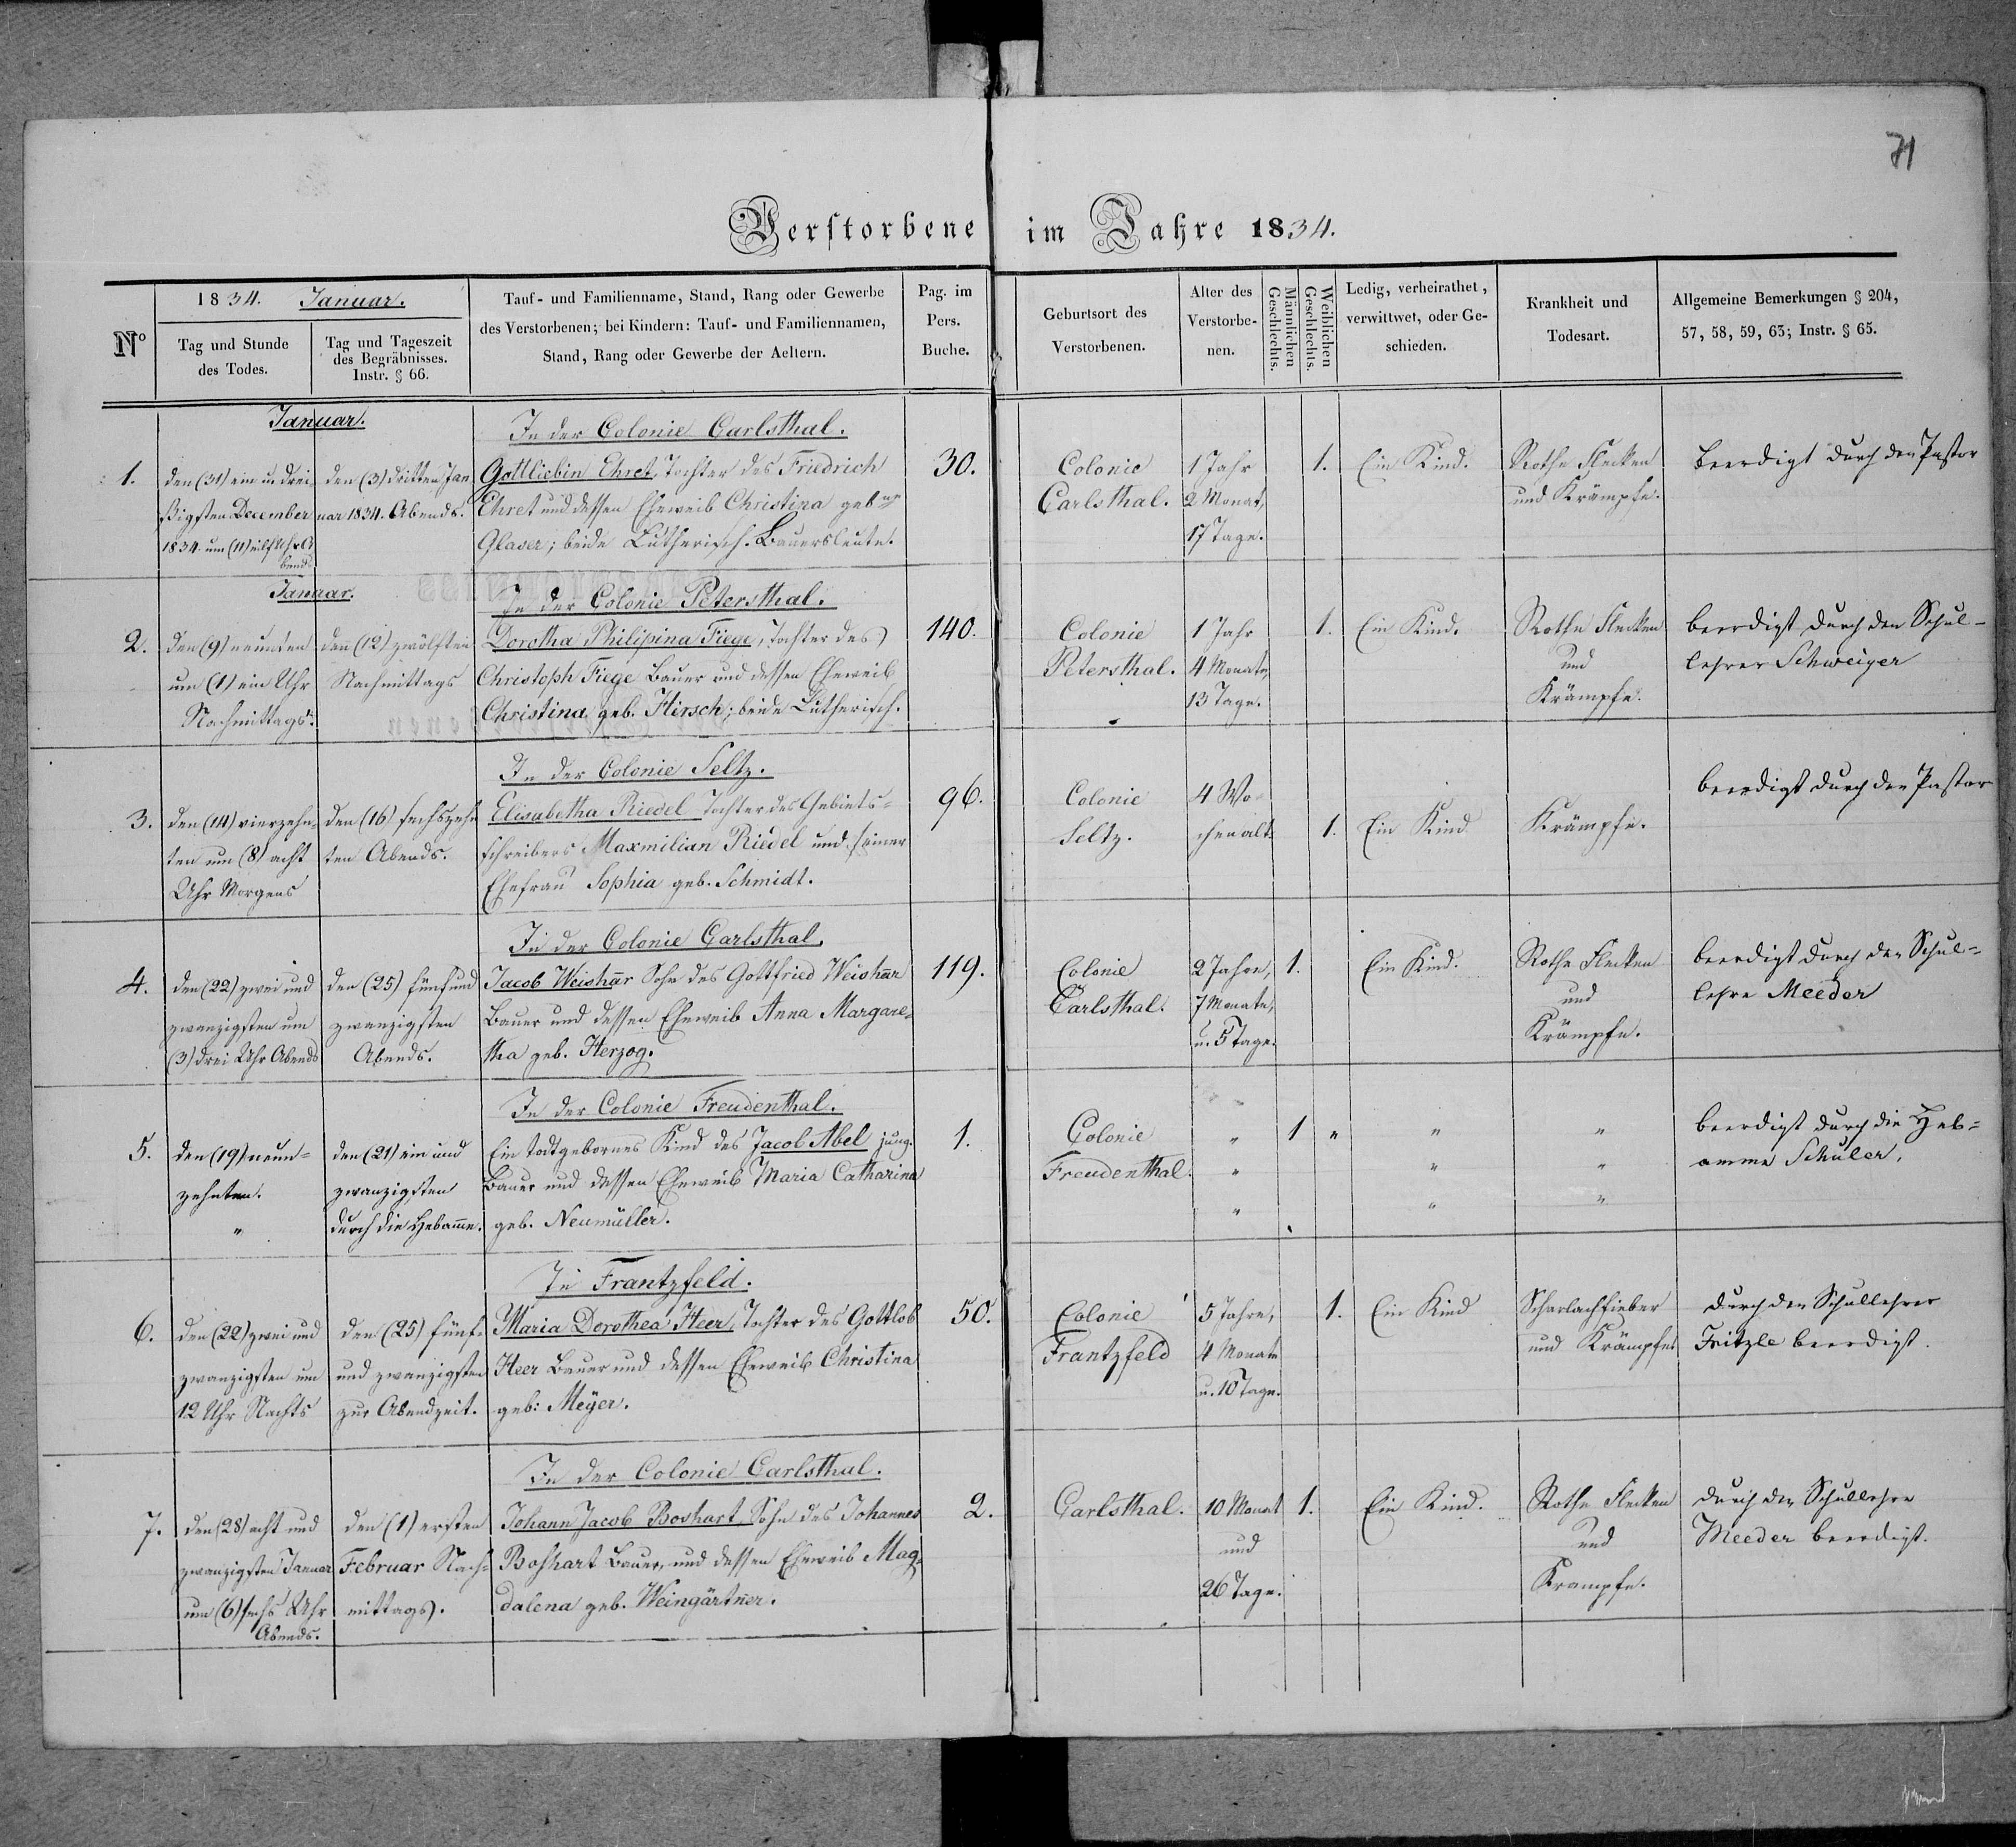 71
Verstorbene im Jahre 1834.
No
1834. Januar.
Tag und Stunde
des Todes.
Tag und Tageszeit
des Begräbnisses.
Instr. § 66.
Tauf- und Familienname, Stand, Rang oder Gewerbe
des Verstorbenen; bei Kindern: Tauf- und Familiennamen,
Stand, Rang oder Gewerbe der Aeltern.
Pag. im
Pers.
Buche.
Geburtsort des
Verstorbenen.
Alter des
Verstorbe-
nen.
Männlichen
Geschlechts.
Weiblichen
Geschlechts.
Ledig, verheirathet,
verwittwet, oder Ge-
schieden.
Krankheit und
Todesart.
Allgemeine Bemerkungen § 204,
57, 58, 59, 63; Instr. § 65.
Januar.
1.
den (31) ein u. drei-
ßigsten December
1834 um (11) eilf Uhr A
bends
den (3) dritten Jan
uar 1834. Abends.
In der Colonie Carlsthal.
Gottliebin Ehret, Tochter des Friedrich
Ehret und dessen Eheweib Christina geb.
Glaser; beide Lutherisch. Bauersleute.
30.
Colonie
Carlsthal.
1 Jahr
2 Monat,
17 Tage.
1.
Ein Kind.
Rothe Flecken
und Krämpfe.
beerdigt durch den Pastor
Januar.
2.
den (9) neunten
um (1) ein Uhr
Nachmittags.
den (12) zwölften
Nachmittags
In der Colonie Petersthal.
Dorotha Philipina Fiege, Tochter des
Christoph Fiege Bauer und dessen Eheweib
Christina geb. Hirsch; beide Lutherisch.
140.
Colonie
Petersthal.
1 Jahr
4 Monate,
13 Tage.
1.
Ein Kind.
Rothe Flecken
und
Krämpfe.
beerdigt durch den Schul-
lehrer Schweiger
3.
den (14) vierzehn-
ten um (8) acht
Uhr Morgens
den (16) sechszehn
ten Abends.
In der Colonie Seltz.
Elisabetha Riedel Tochter des Gebiets-
schreibers Maxmilian Riedel und seiner
Ehefrau Sophia geb. Schmidt.
96.
Colonie
Seltz.
4 Wo-
chen alt
1.
Ein Kind
Krämpfe.
beerdigt durch den Pastor
4.
den (22) zwei und
zwanzigsten um
(3) drei Uhr Abends
den (25) fünfund
zwanzigsten
Abends.
In der Colonie Carlsthal.
Jacob Weishar Sohn des Gottfried Weishaar
Bauer und dessen Eheweib Anna Margare-
tha geb. Herzog.
119.
Colonie
Carlsthal.
2 Jahre,
7 Monate,
u. 5 Tage.
1.
Ein Kind.
Rothe Flecken
und
Krämpfe.
beerdigt durch den Schul-
lehre Meeder
5.
den (19) neun-
zehnten.
"
den (21) ein und
zwanzigsten
durch die Hebamme.
In der Colonie Freudenthal.
Ein todtgebornes Kind des Jacob Abel jung.
Bauer und dessen Eheweib Maria Catharina
geb. Neumüller.
1.
Colonie
Freudenthal.
"
"
"
1
"
"
"
"
"
"
"
beerdigt durch die Heb-
amme Schuler.
6.
den (22) zwei und
zwanzigsten um
12 Uhr Nachts
den (25) fünf-
und zwanzigsten
zur Abendzeit.
In Frantzfeld.
Maria Dorothea Heer, Tochter des Gottlob
Heer Bauer und dessen Eheweib Christina
geb: Meÿer.
50.
Colonie
Frantzfeld
5 Jahre,
4 Monate
u. 10 Tage.
1.
Ein Kind
Scharlachfieber
und Krämpfe
durch den Schullehrer
Fritzle beerdigt.
7.
den (28) acht und
zwanzigsten Januar
um (6) sechs Uhr
Abends.
den (1) ersten
Februar Nach-
mittags.
In der Colonie Carlsthal.
Johann Jacob Boshart, Sohn des Johannes
Boshart Bauer, und dessen Eheweib Mag-
dalena geb. Weingärtner.
2.
Carlsthal.
10 Monat
und
26 Tage.
1.
Ein Kind.
Rothe Flecken
und
Krampfe.
durch den Schullehre
Meeder beerdigt.